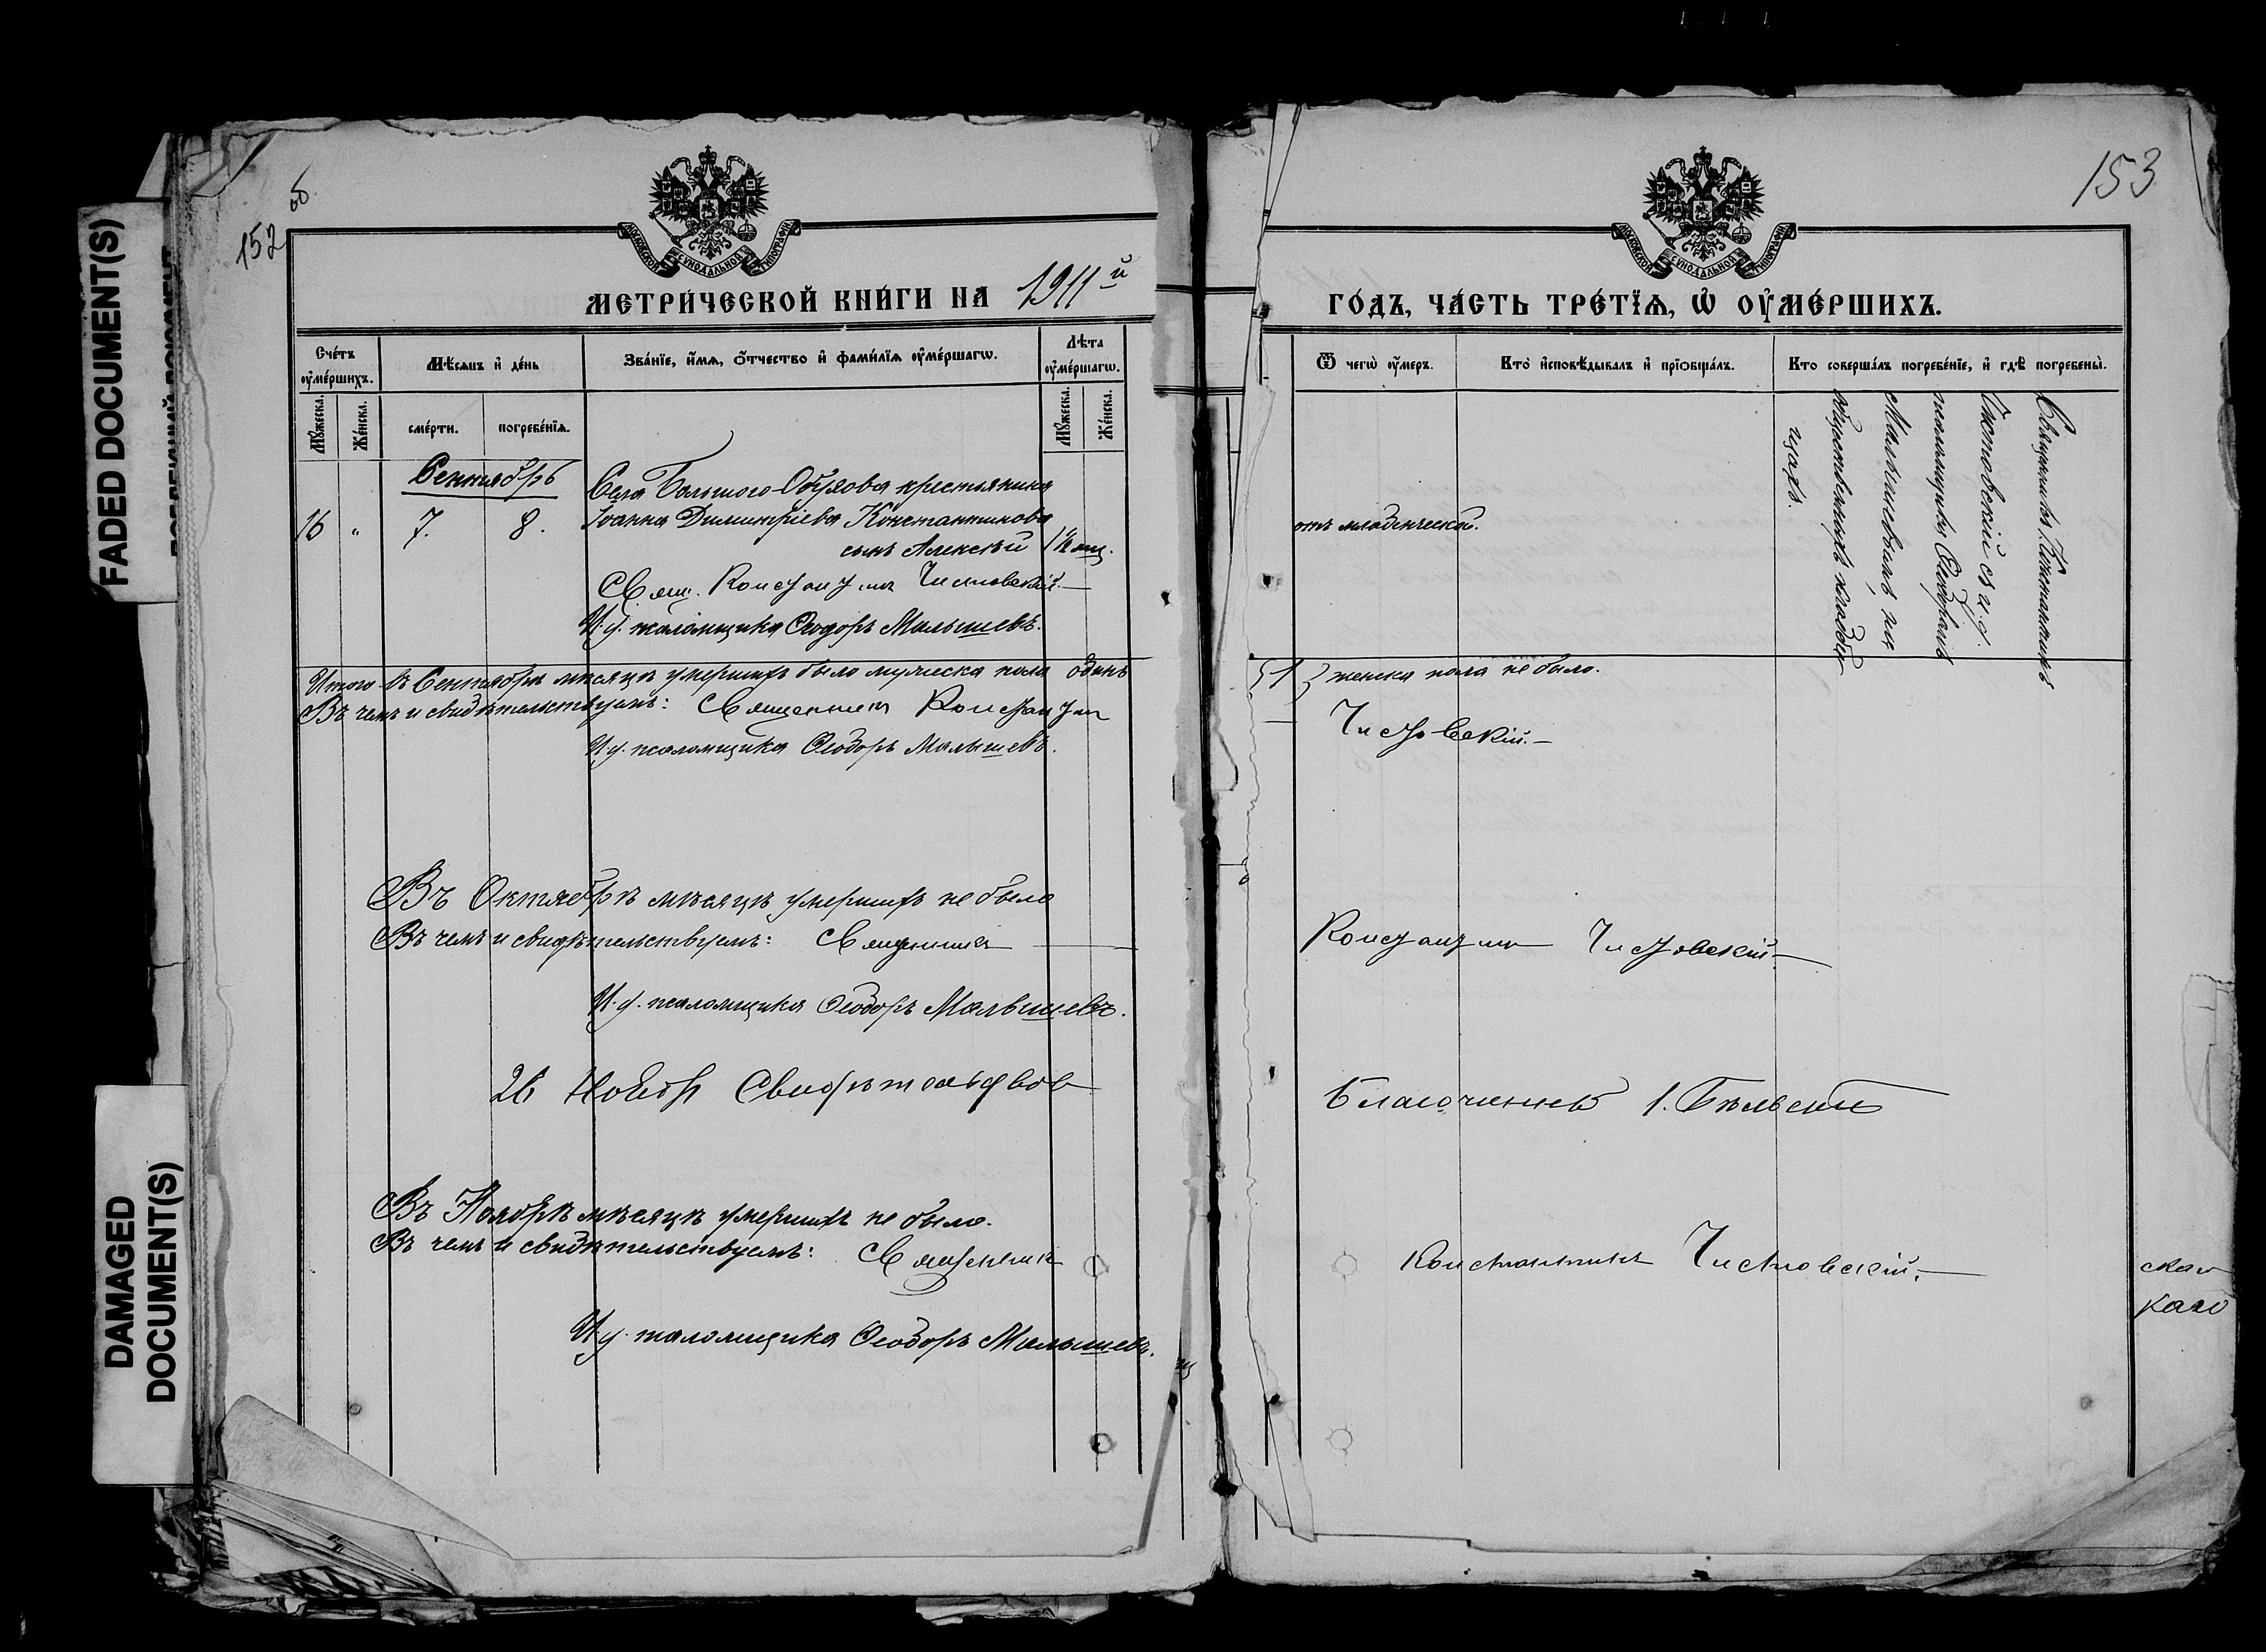 FADED DOCUMENT(S)
DAMAGED
DOCUMENT(S)
152
об
153
МОСКОВСКОЙ СѴНОДАЛЬНОЙ ТИПОГРАФІИ
МОСКОВСКОЙ СѴНОДАЛЬНОЙ ТИПОГРАФІИ
МЕТРИ́ЧЕСКОЙ КНИ́ГИ НА 1911 й
ГО́ДЪ, ЧА́СТЬ ТРЕ́ТЇѦ, Ѽ ОУ҆МЕ́РШИХЪ.
Сче́тъ оу҆ме́ршихъ.
Мꙋ́жеска.
Же́нска.
Мѣ́сѧцъ и҆ де́нь
сме́рти.
погребе́нїѧ.
Зва́нїе, и҆́мѧ, ѻ҆́тчество и҆ фами́лїѧ оу҆ме́ршагѡ.
Лѣ́та оу҆ме́ршагѡ.
Мꙋ́жеска.
Же́нска.
Ѿ чегѡ̀ оу҆́меръ.
Кто̀ и҆сповѣ́дывалъ и҆ прїѻбща́лъ.
Кто соверша́лъ погребе́нїе, и҆ гдѣ̀ погребены̀.
Сентябрь
16 " 7. 8.
Села Большого-Обухова крестьянина
Іоанна Димитріева Константинова
сынъ Алексѣй 1½ мц.
отъ младенческой.
Священникъ Константинъ
Чистовскій съ и. д.
псаломщика Ѳеодоромъ
Малышевымъ на
общественномъ кладби-
щахъ.
Свящ. Константинъ Чистовскій.—
И. д. псаломщика Ѳеодоръ Малышевъ.
Итого въ Сентябрѣ мѣсяцѣ умершихъ было мужеска пола одинъ
{1} женска пола не было.
Въ чемъ и свидѣтельствуемъ: Священникъ Константинъ
Чистовскій.—
И. д. псаломщика Ѳеодоръ Малышевъ.
Въ Октябрѣ мѣсяцѣ умершихъ не было
Въ чемъ и свидѣтельствуемъ: Священникъ
Константинъ Чистовскій.—
И. д. псаломщика Ѳеодоръ Малышевъ.
26 Ноябр Свидѣтельствов
Благочинный І. Бѣльскій
Въ Ноябрѣ мѣсяцѣ умершихъ не было.
Въ чемъ и свидѣтельствуемъ: Священникъ
Константинъ Чистовскій.—
И. д. псаломщика Ѳеодоръ Малышевъ.